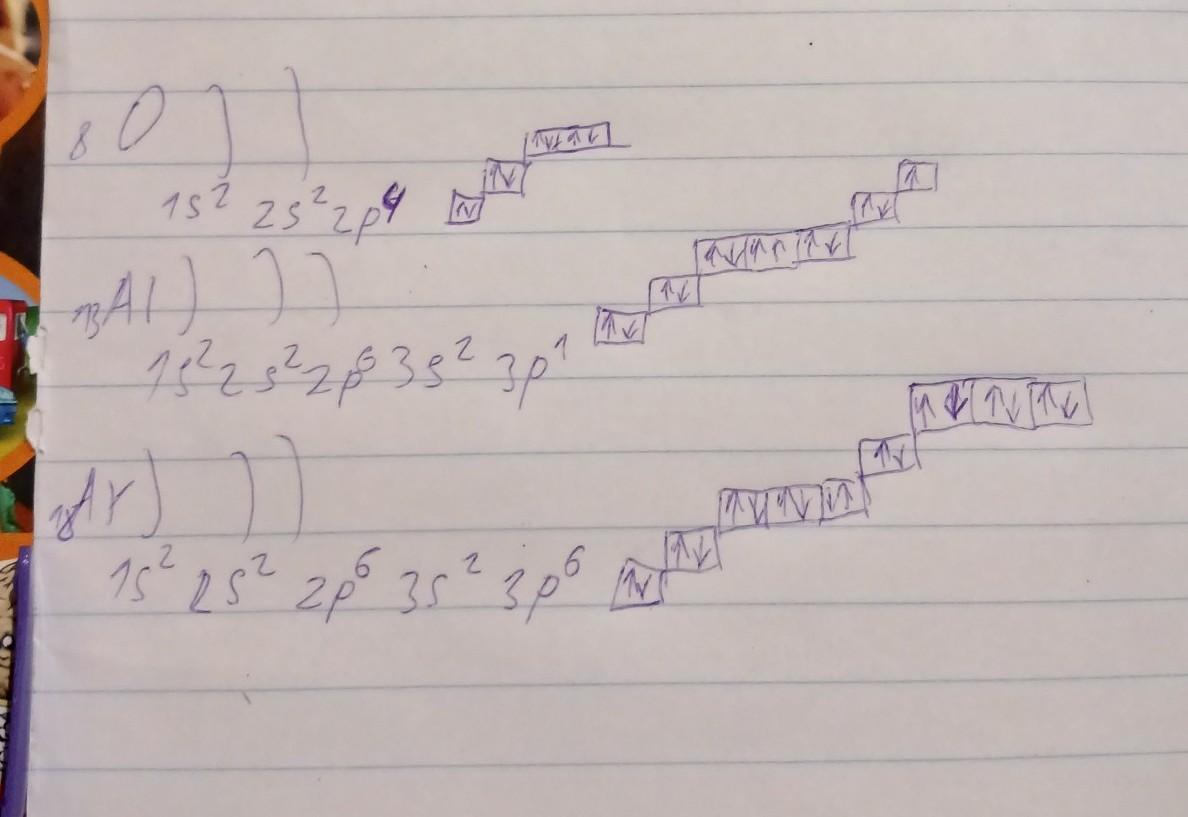 ₈O ) )
1s² 2s² 2p⁴ ↑↓ ↑↓ ↑↓↑↑↓
₁₃Al ) ) )
1s² 2s² 2p⁶ 3s² 3p¹ ↑↓ ↑↓ ↑↓ ↑↑ ↑↓ ↑↓ ↑
₁₈Ar ) ) )
1s² 2s² 2p⁶ 3s² 3p⁶ ↑↓ ↑↓ ↑↓ ↑↓ ↓↑ ↑↓ ↑↓ ↑↓ ↑↓